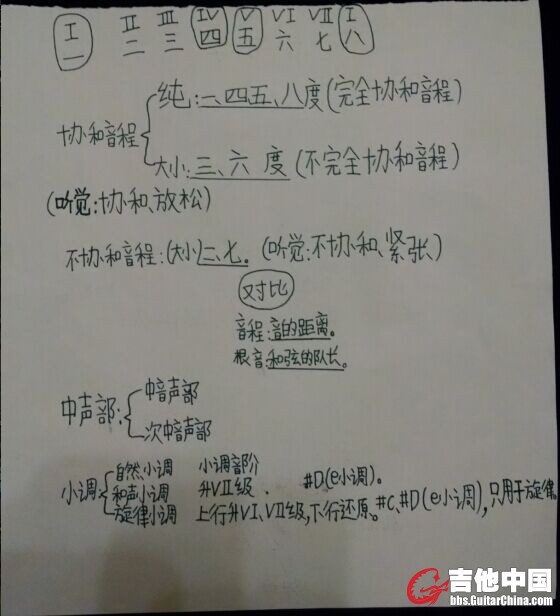 I II III IV V VI VII I
一 二 三 四 五 六 七 八
协和音程
纯:一、四五、八度(完全协和音程)
大小:三、六度(不完全协和音程)
(听觉:协和、放松)
不协和音程:(大小)二、七。(听觉:不协和、紧张)
对比
音程:音的距离。
根音:和弦的队长。
中声部:
中音声部
次中音声部
小调
自然小调 小调音阶
和声小调 升VII级. #D(e小调)。
旋律小调 上行升VI、VII级,下行还原。#C、#D(e小调),只用于旋律。
吉他中国
bbs.GuitarChina.com